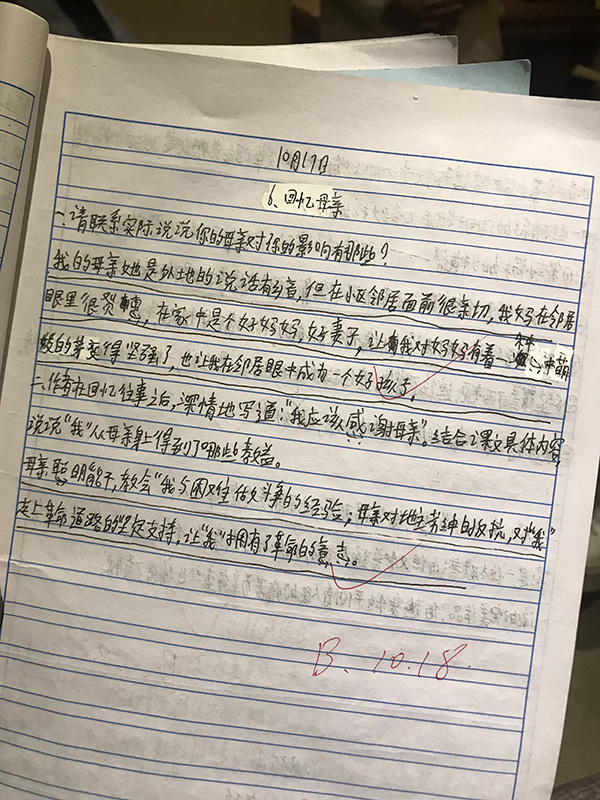 10月17日
6、回忆母亲
一、请联系实际说说你的母亲对你的影响有哪些?
我的母亲她是外地的说话有乡音,但在小区邻居面前很亲切,我妈在邻居
眼里很贤 ,在家中是个好妈妈,好妻子,让我对妈妈有着一
变得坚强了,也让我在邻居眼中成为一个好孩子。
二、作者在回忆往事之后,深情地写道:“我应该感谢母亲”。结合课文具体内容,
说说“我”从母亲身上得到了哪些教益。
母亲聪明能干,教会“我与困难作斗争的经验;母亲对地主劣绅的反抗,对“我”
走上革命道路的坚定支持,让“我”拥有了革命的意志。
B. 10.18.